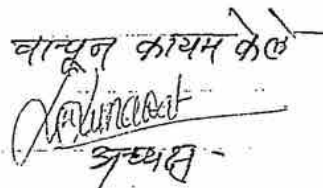 वाचून कायम केले
अध्यक्ष -